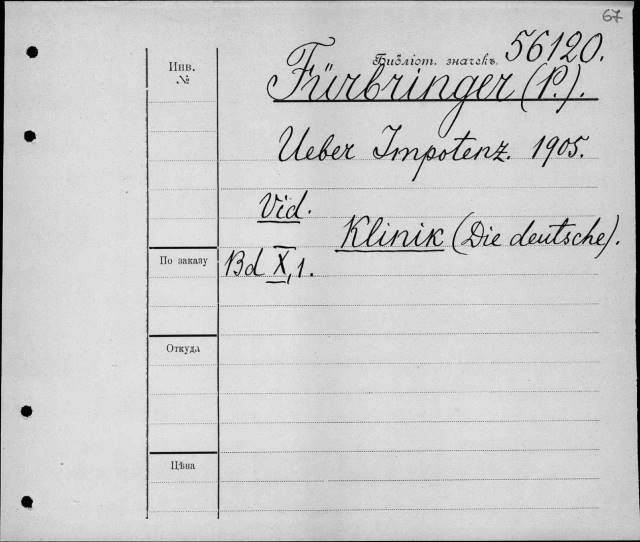 67
Библіот. значекъ. 56120.
Инв.
№
Fürbringer (P.).
Ueber Impotenz. 1905.
Vid.
Klinik (Die deutsche).
По заказу
Bd X, 1.
Откуда
Цѣна